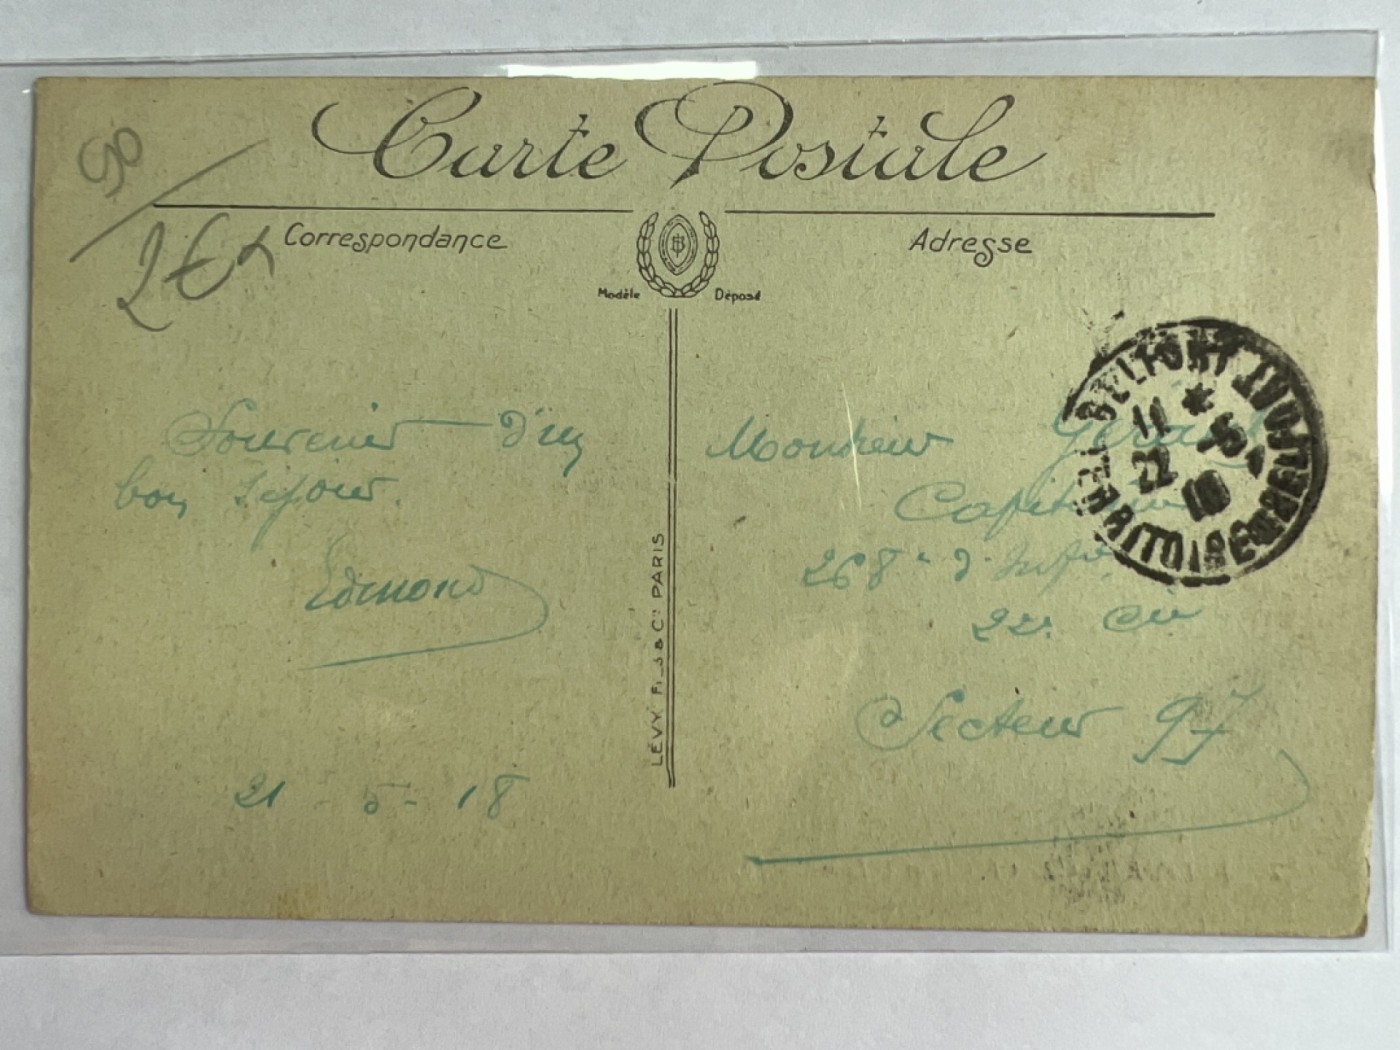 Carte Postale
50
2€
Correspondance
Adresse
Modèle Déposé
Souvenir d'un
bon séjour.
Edmond
21-5-18
LÉVY FILS & Cie PARIS
Monsieur Gérard
Capitaine
268e d'Infie
22e Cie
Secteur 97
BELFORT
11 *
22 -5
18
TERRITOIRE DE BELFORT